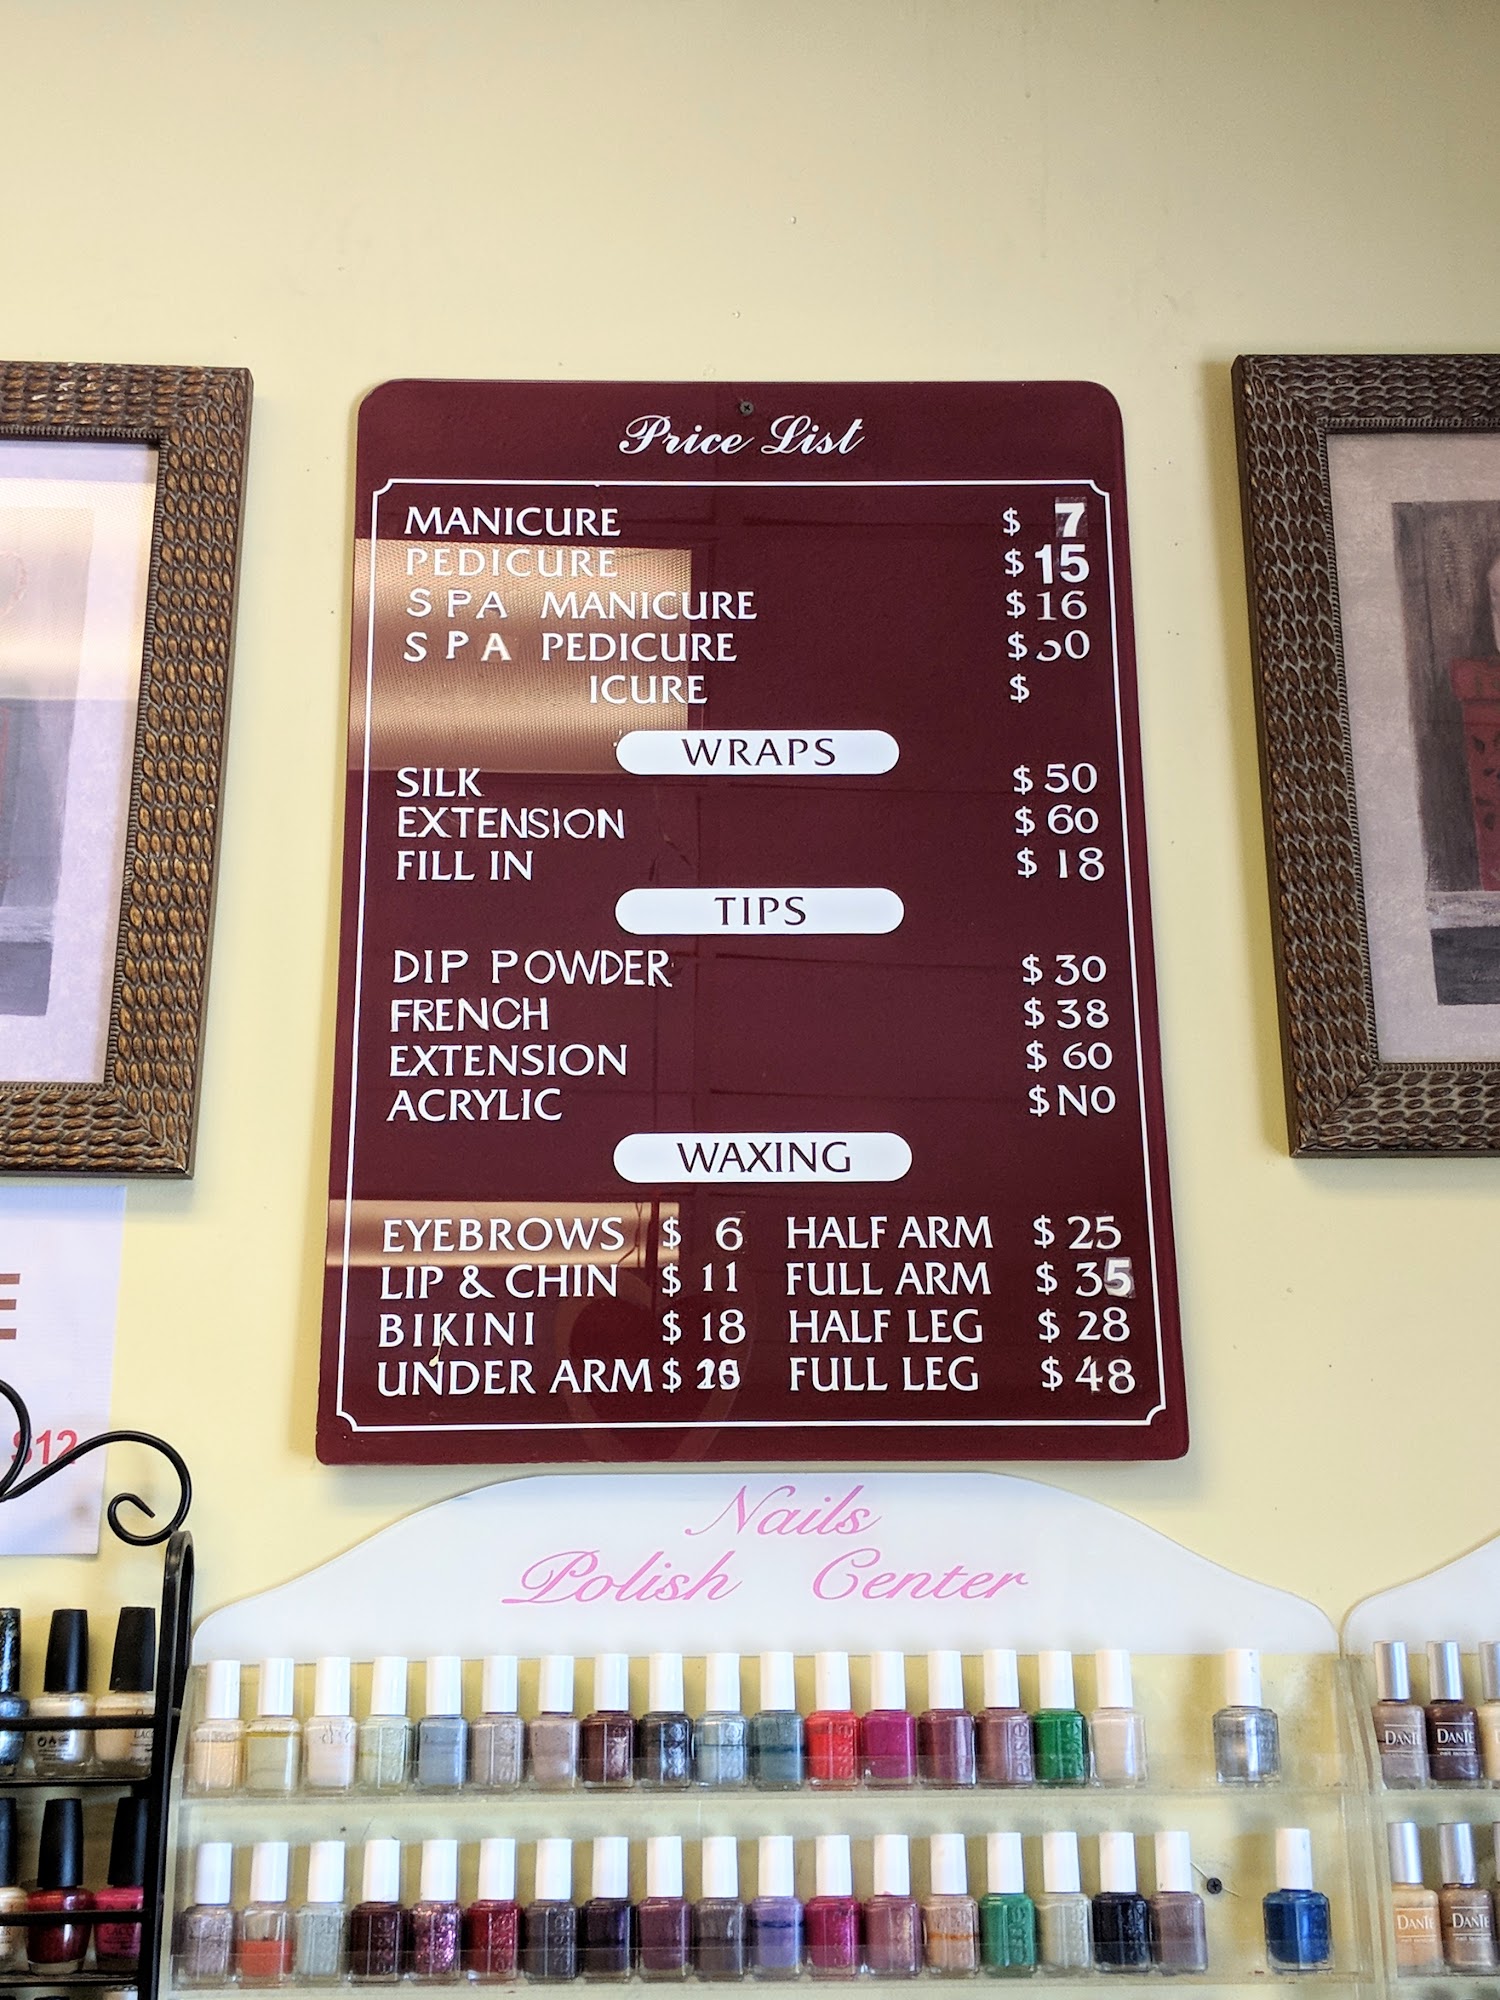 Price List
MANICURE $ 7
PEDICURE $ 15
SPA MANICURE $ 16
SPA PEDICURE $ 30
ICURE $
WRAPS
SILK $ 50
EXTENSION $ 60
FILL IN $ 18
TIPS
DIP POWDER $ 30
FRENCH $ 38
EXTENSION $ 60
ACRYLIC $ NO
WAXING
EYEBROWS $ 6 HALF ARM $ 25
LIP & CHIN $ 11 FULL ARM $ 35
BIKINI $ 18 HALF LEG $ 28
UNDER ARM $ FULL LEG $ 48
E
$12
Nails
Polish Center
DANTE
DANTE
DANTE
DANTE